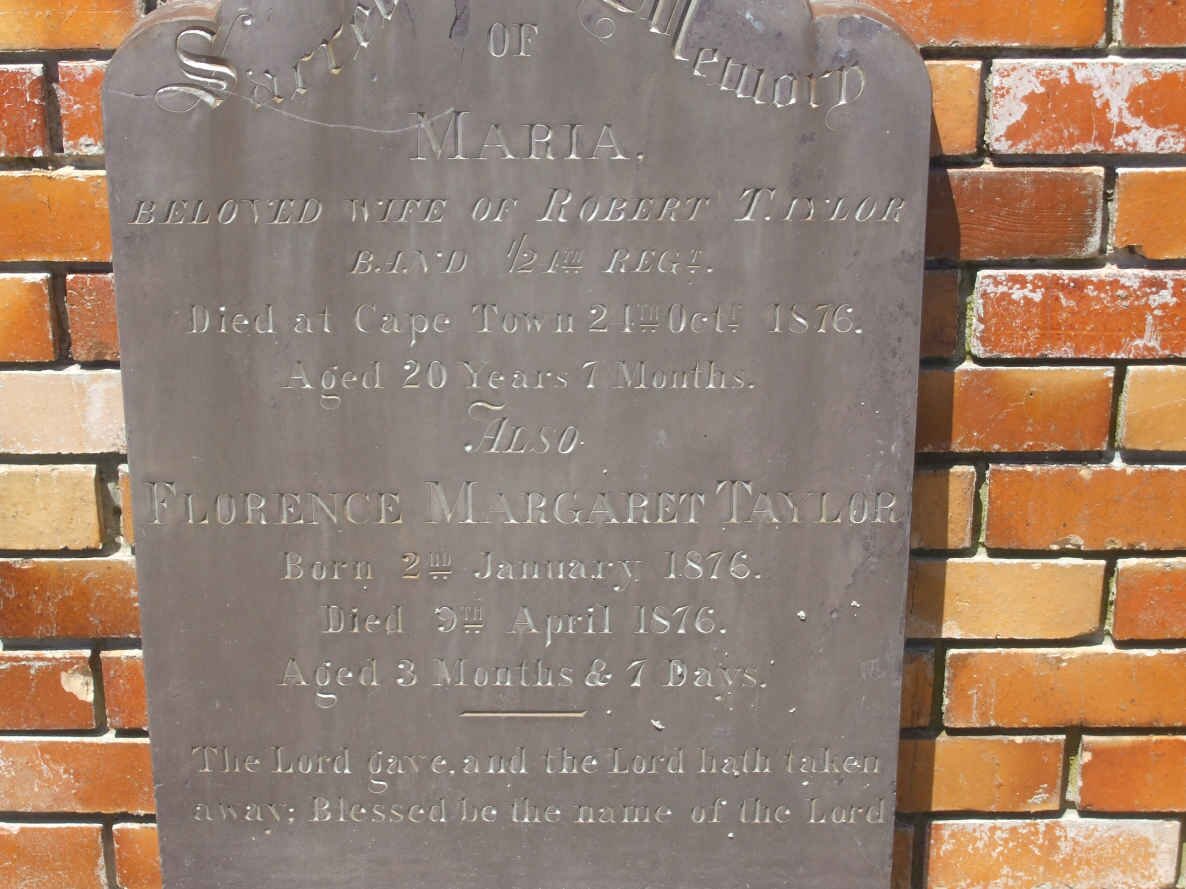 Sacred to the Memory
OF
MARIA.
BELOVED WIFE OF ROBERT TAYLOR
BAND 1/24TH REGT.
Died at Cape Town 24TH Octr 1876.
Aged 20 Years 7 Months.
ALSO
FLORENCE MARGARET TAYLOR
Born 2ND January 1876.
Died 9TH April 1876.
Aged 3 Months & 7 Days.
The Lord gave, and the Lord hath taken
away; Blessed be the name of the Lord